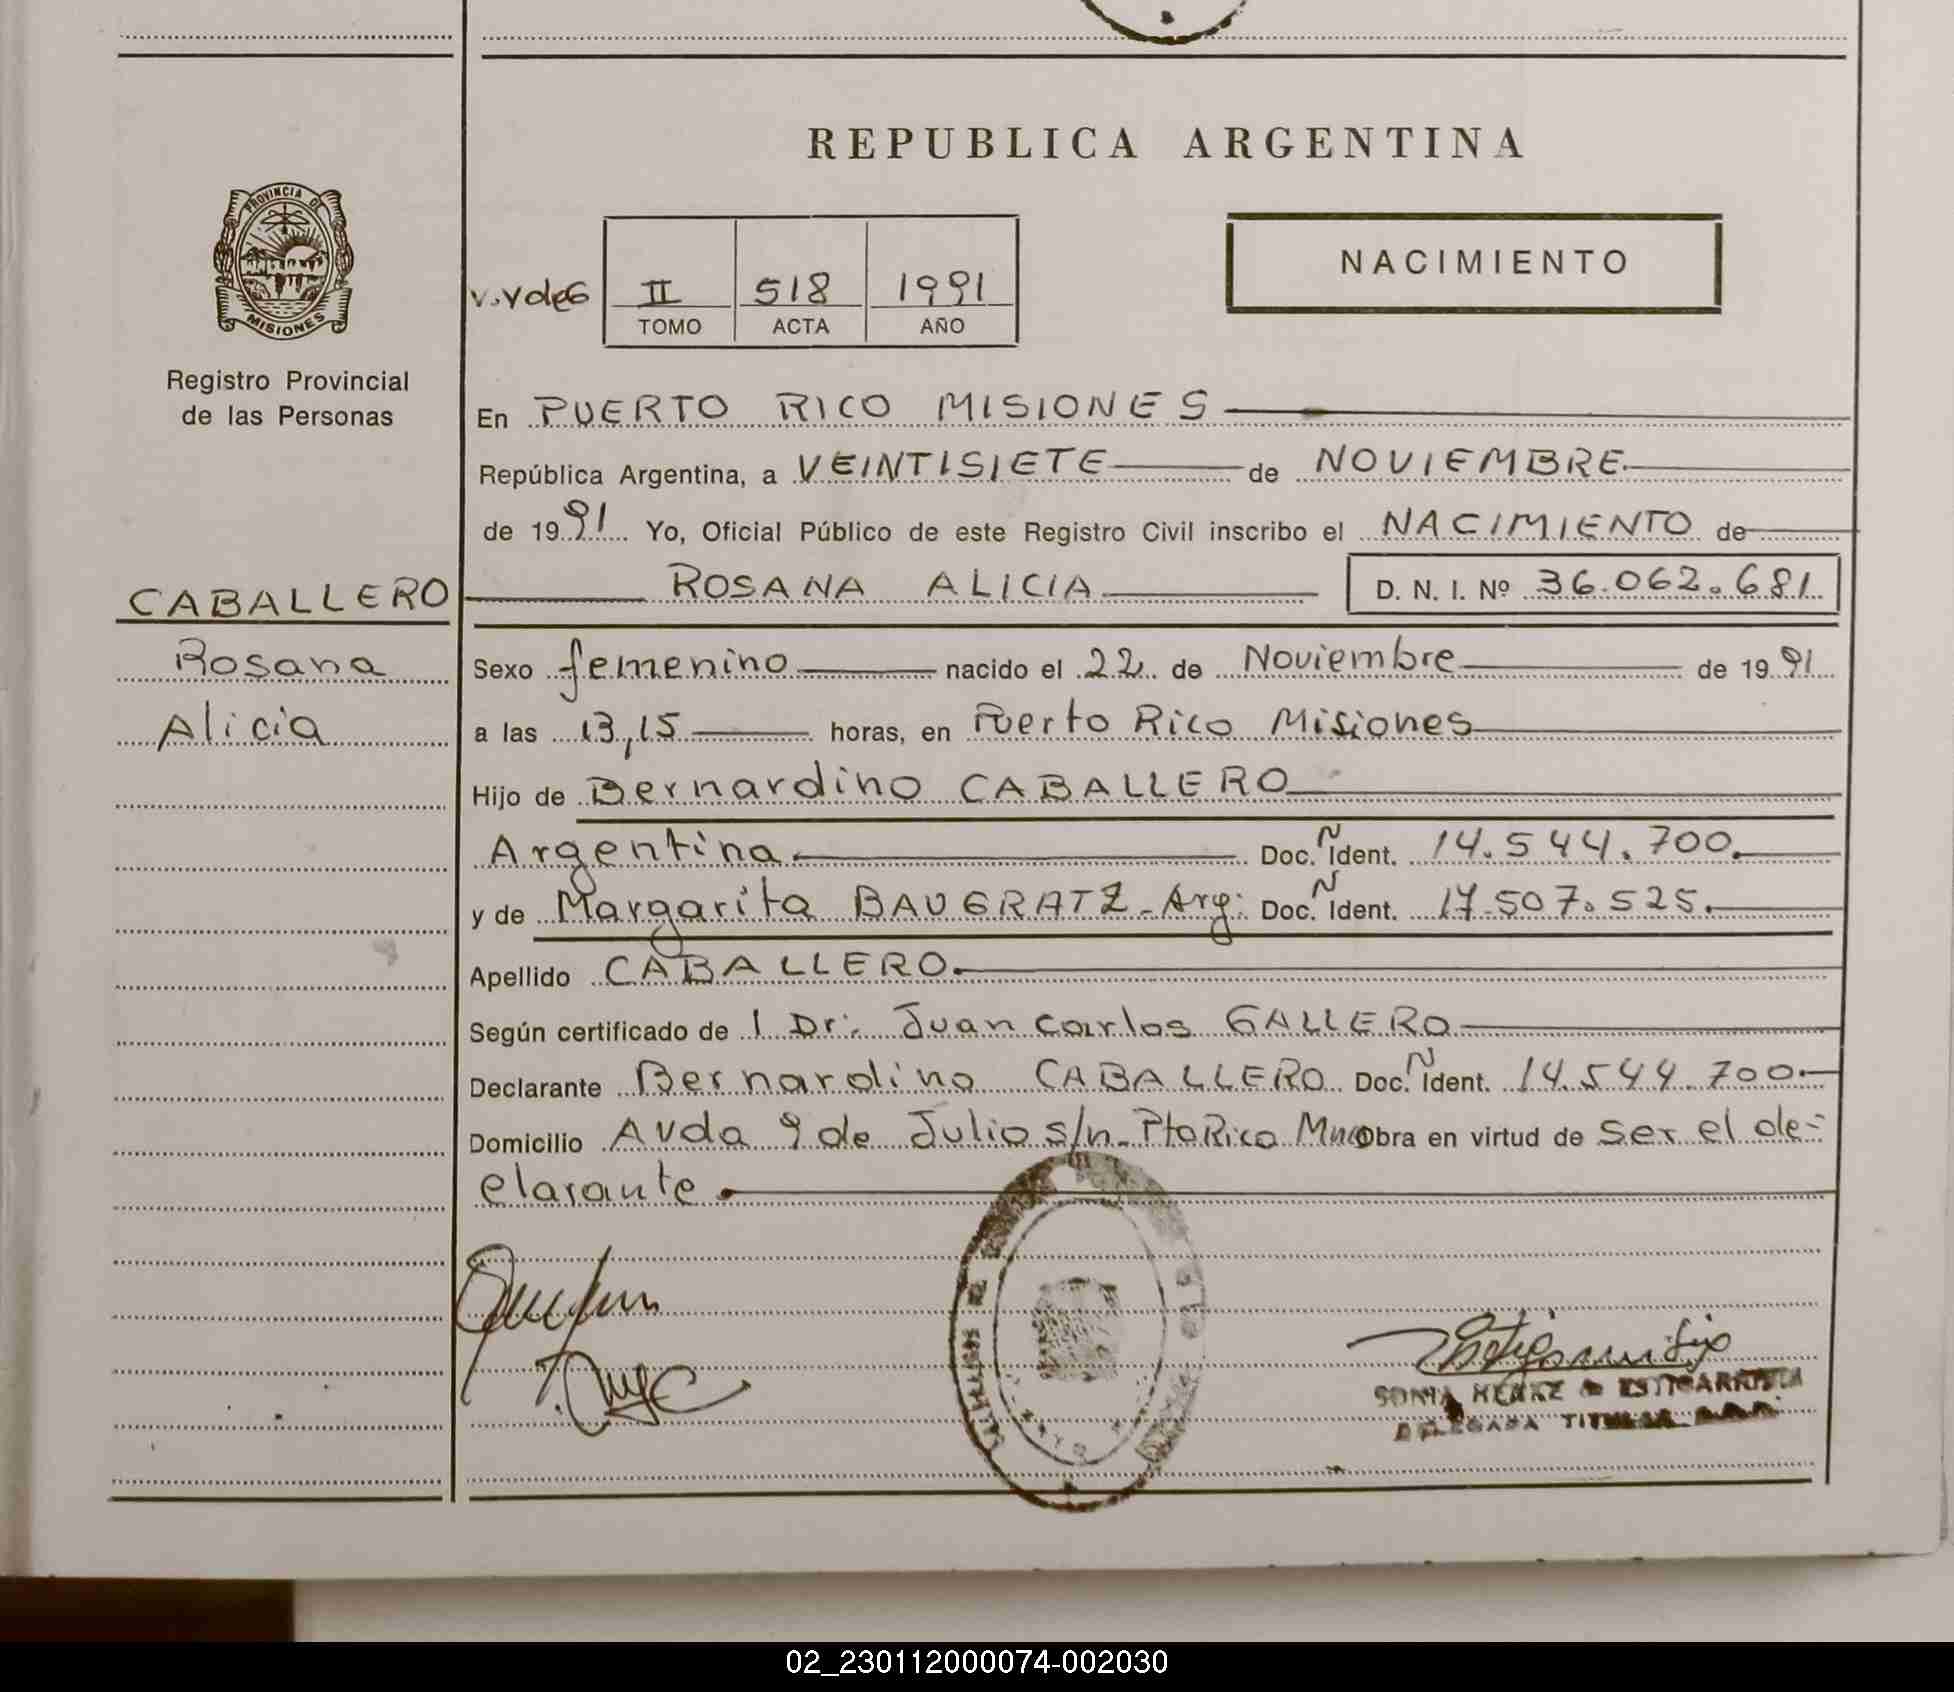 REPUBLICA ARGENTINA
PROVINCIA DE
MISIONES
Registro Provincial
de las Personas
II 518 1991
TOMO ACTA AÑO
NACIMIENTO
En PUERTO RICO MISIONES
República Argentina, a VEINTISIETE de NOVIEMBRE
de 1991 Yo, Oficial Público de este Registro Civil inscribo el NACIMIENTO de
CABALLERO
Rosana
Alicia
ROSANA ALICIA D. N. I. Nº 36.062.681
Sexo femenino nacido el 22 de Noviembre de 1991
a las 13,15 horas, en Puerto Rico Misiones
Hijo de Bernardino CABALLERO
Argentina Doc. Ñ Ident. 14.544.700.
y de Margarita BAUGRATZ - Arg: Doc. Ñ Ident. 17.507.525.
Apellido CABALLERO.
Según certificado de l Dr: Juan Carlos GALLERO
Declarante Bernardino CABALLERO Doc. Ñ Ident. 14.544.700.
Domicilio Avda 9 de Julio s/n - Pto Rico Mnes Obra en virtud de ser el de-
clarante.
SONIA DE ESTIGARRIBIA
DELEGADA TITULAR
02_230112000074-002030